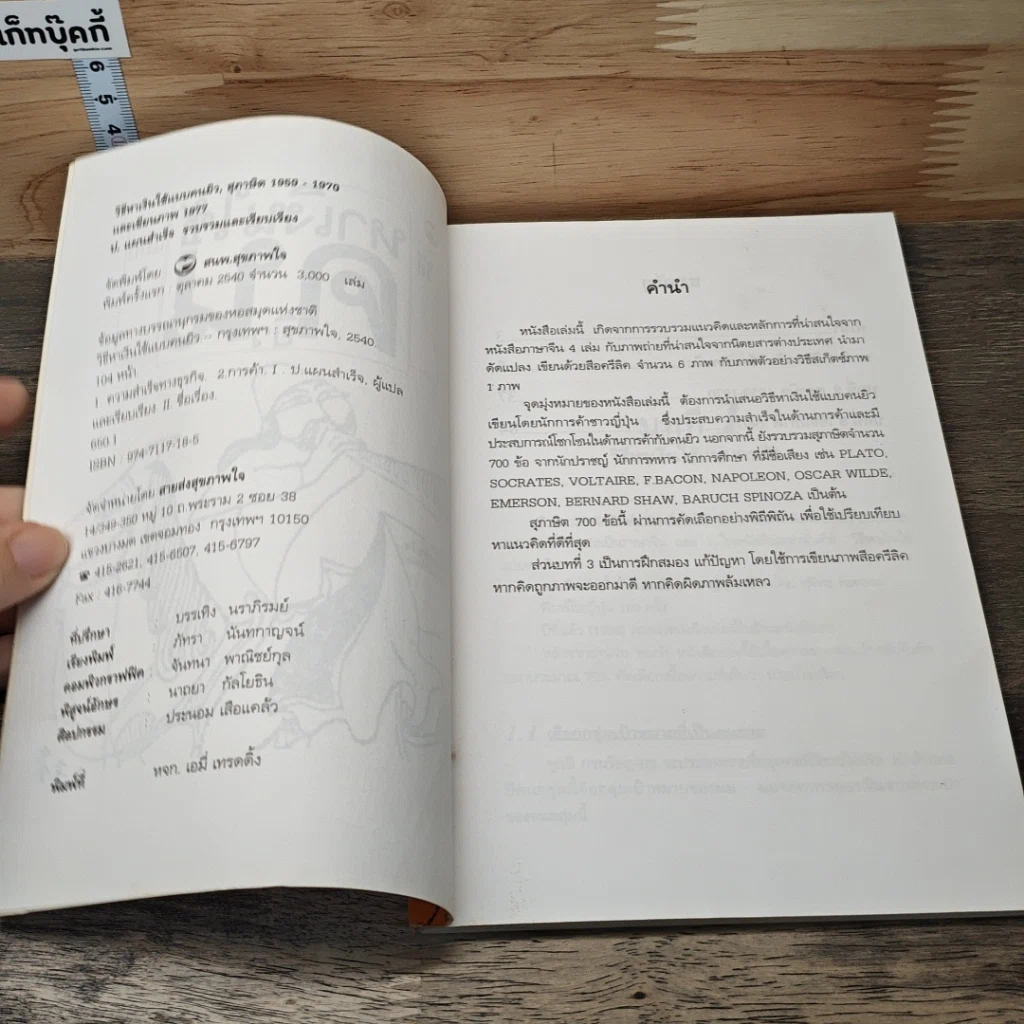 เก็ทบุ๊คกี้
6
5
4
วิธีหาเงินใช้แบบคนยิว, สุภาษิต 1959 - 1976
และเขียนภาพ 1977
ป. แผนสำเร็จ รวบรวมและเรียบเรียง
จัดพิมพ์โดย สนพ.สุขภาพใจ
พิมพ์ครั้งแรก : ตุลาคม 2540 จำนวน 3,000 เล่ม
ข้อมูลทางบรรณานุกรมของหอสมุดแห่งชาติ
วิธีหาเงินใช้แบบคนยิว.-- กรุงเทพฯ : สุขภาพใจ, 2540.
104 หน้า.
1. ความสำเร็จทางธุรกิจ. 2.การค้า. I . ป แผนสำเร็จ, ผู้แปล
และเรียบเรียง II. ชื่อเรื่อง.
650.1
ISBN : 974-7117-18-5
จัดจำหน่ายโดย สายส่งสุขภาพใจ
14/349-350 หมู่ 10 ถ.พระราม 2 ซอย 38
แขวงบางมด เขตจอมทอง กรุงเทพฯ 10150
☎ 415-2621, 415-6507, 415-6797
Fax : 416-7744
ที่ปรึกษา บรรเทิง นราภิรมย์
เรียงพิมพ์ ภัทรา นันทกาญจน์
คอมพิวกราฟฟิค : จันทนา พาณิชย์กุล
พิสูจน์อักษร : นาถยา กัลโยธิน
ศิลปกรรม : ประนอม เสือแคล้ว
พิมพ์ที่ หจก. เอมี่ เทรดดิ้ง
คำนำ
หนังสือเล่มนี้ เกิดจากการรวบรวมแนวคิดและหลักการที่น่าสนใจจาก
หนังสือภาษาจีน 4 เล่ม กับภาพถ่ายที่น่าสนใจจากนิตยสารต่างประเทศ นำมา
ดัดแปลง เขียนด้วยสีอครีลิค จำนวน 6 ภาพ กับภาพตัวอย่างวิธีสเก็ตซ์ภาพ
1 ภาพ
จุดมุ่งหมายของหนังสือเล่มนี้ ต้องการนำเสนอวิธีหาเงินใช้แบบคนยิว
เขียนโดยนักการค้าชาวญี่ปุ่น ซึ่งประสบความสำเร็จในด้านการค้าและมี
ประสบการณ์โชกโชนในด้านการค้ากับคนยิว นอกจากนี้ ยังรวบรวมสุภาษิตจำนวน
700 ข้อ จากนักปราชญ์ นักการทหาร นักการศึกษา ที่มีชื่อเสียง เช่น PLATO,
SOCRATES, VOLTAIRE, F.BACON, NAPOLEON, OSCAR WILDE,
EMERSON, BERNARD SHAW, BARUCH SPINOZA เป็นต้น
สุภาษิต 700 ข้อนี้ ผ่านการคัดเลือกอย่างพิถีพิถัน เพื่อใช้เปรียบเทียบ
หาแนวคิดที่ดีที่สุด
ส่วนบทที่ 3 เป็นการฝึกสมอง แก้ปัญหา โดยใช้การเขียนภาพสีอครีลิค
หากคิดถูกภาพจะออกมาดี หากคิดผิดภาพล้มเหลว